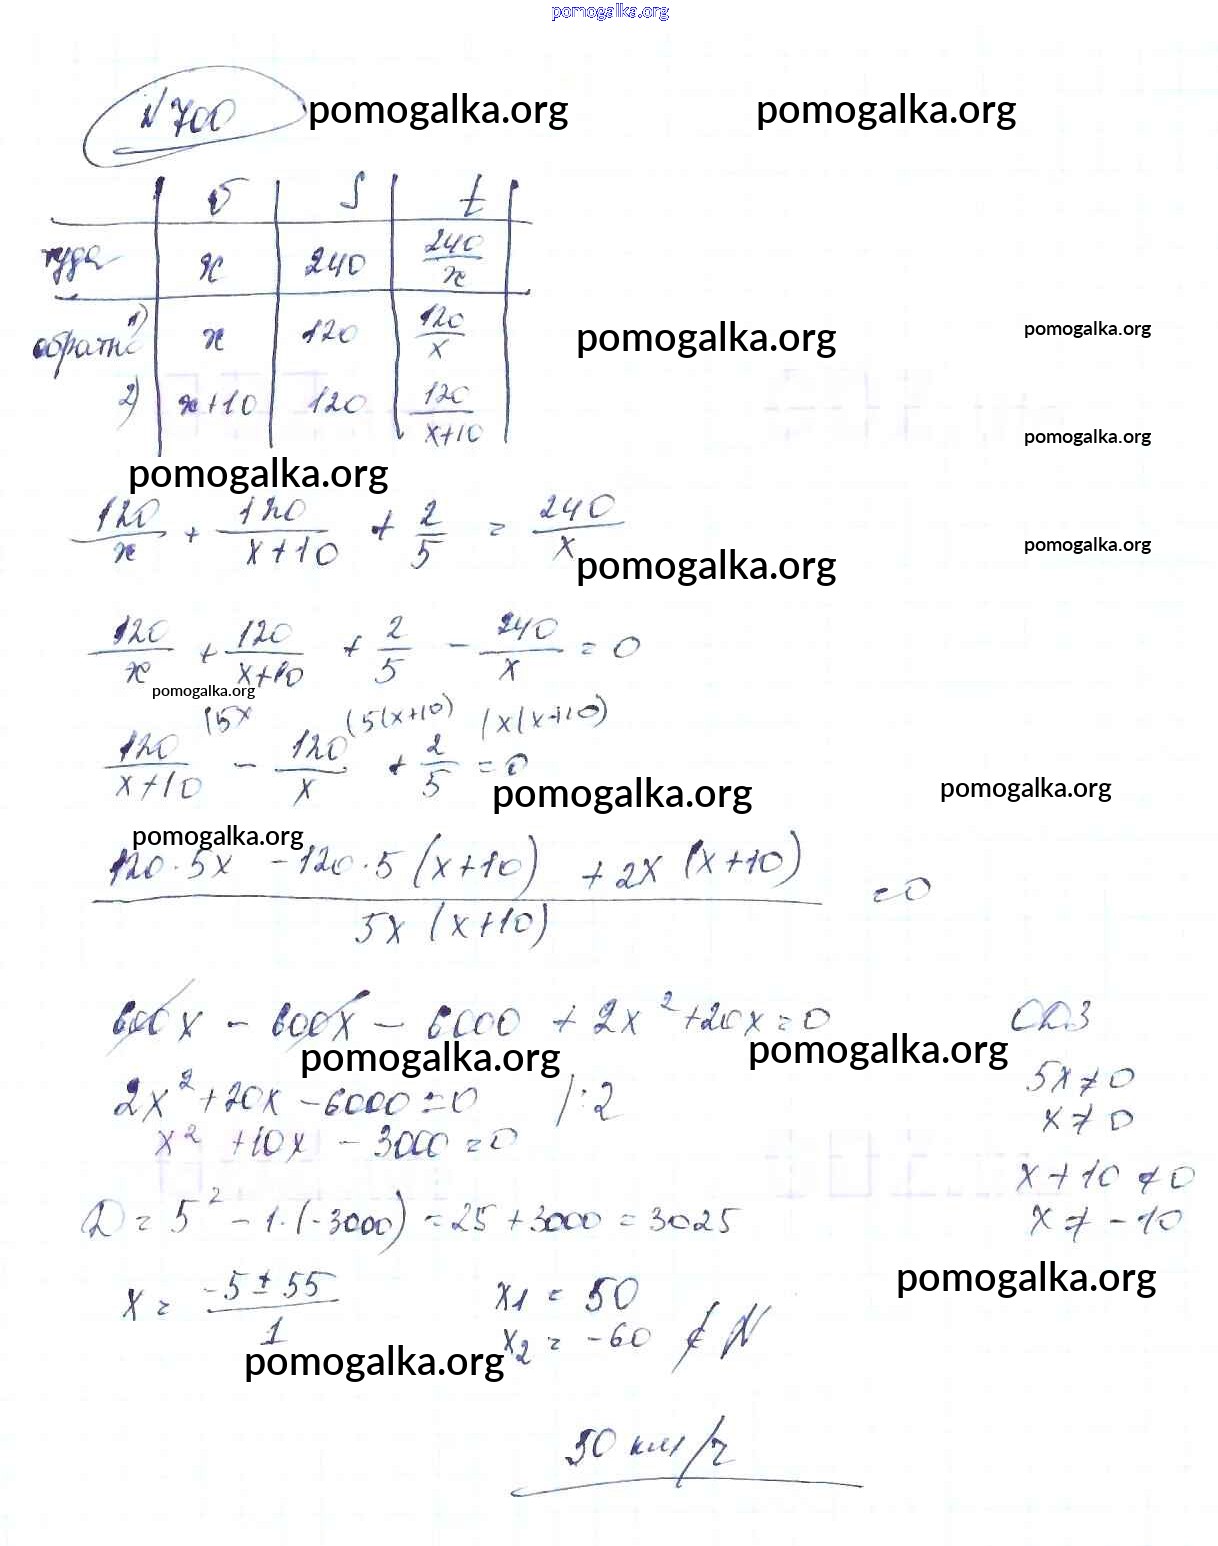 pomogalka.org
№ 700 pomogalka.org pomogalka.org
v S t
туда x 240 240/x
обратно 1) x 120 120/x
pomogalka.org pomogalka.org
2) x+10 120 120/x+10
pomogalka.org
pomogalka.org
120/x + 120/x+10 + 2/5 = 240/x
pomogalka.org
pomogalka.org
120/x + 120/x+10 + 2/5 - 240/x = 0
pomogalka.org
(5x (5(x+10) (x(x+10)
120/x+10 - 120/x + 2/5 = 0
pomogalka.org pomogalka.org
pomogalka.org
120·5x - 120·5(x+10) + 2x(x+10)/5x(x+10) = 0
600x - 600x - 6000 + 2x²+20x=0 ОДЗ
pomogalka.org pomogalka.org
2x²+20x-6000=0 /:2 5x≠0
x²+10x-3000=0 x≠0
x+10≠0
D = 5² - 1·(-3000) = 25+3000 = 3025 x≠-10
pomogalka.org
x = -5±55/1 x1 = 50
x2 = -60 ∉ N
pomogalka.org
50 км/ч